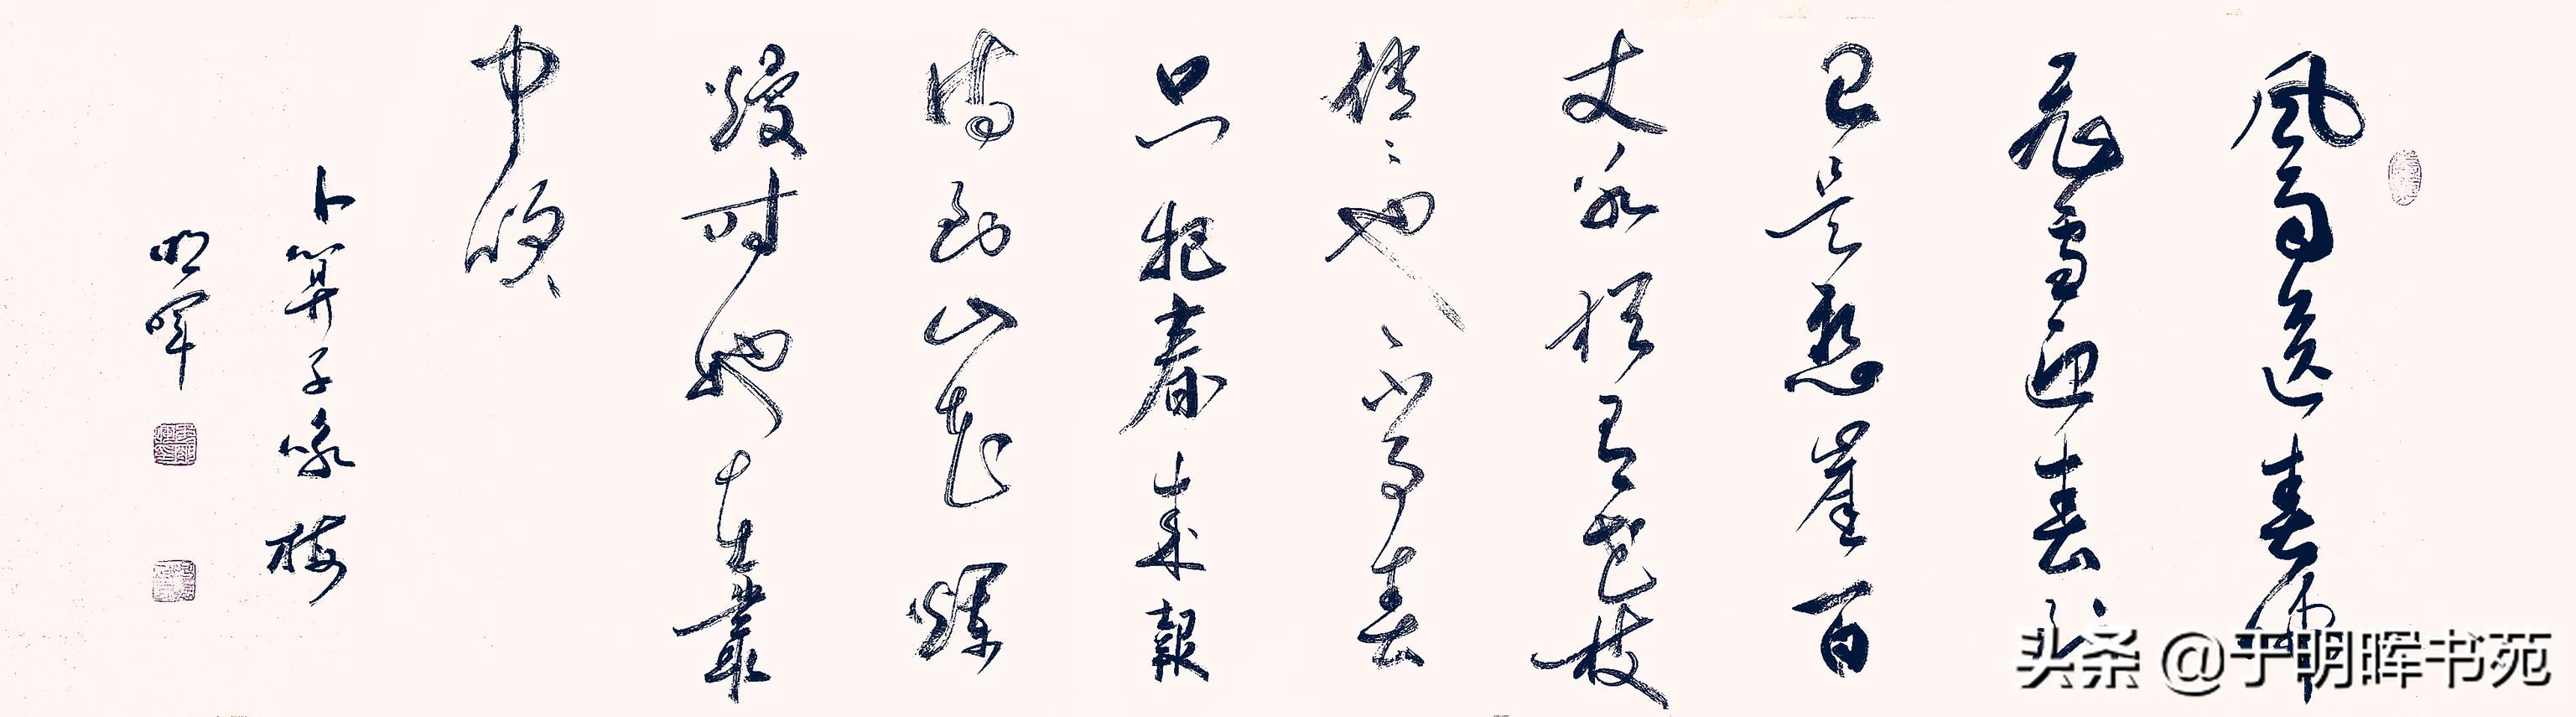 风雨送春归
飛雪迎春到
已是悬崖百
丈冰犹有花枝
俏〻也不争春
只把春来報
待到山花爛
熳时她在叢
中咲
卜算子咏梅
明晖
头条 @于明晖书苑